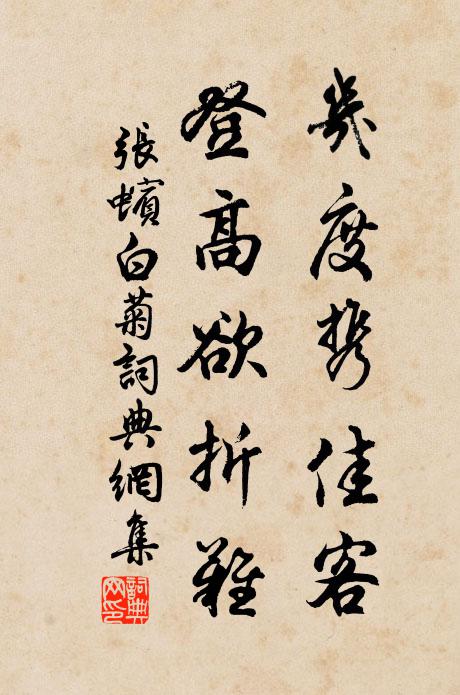 幾度携佳客
登高欲折難
張蠙白菊詞典網集
詞典網印